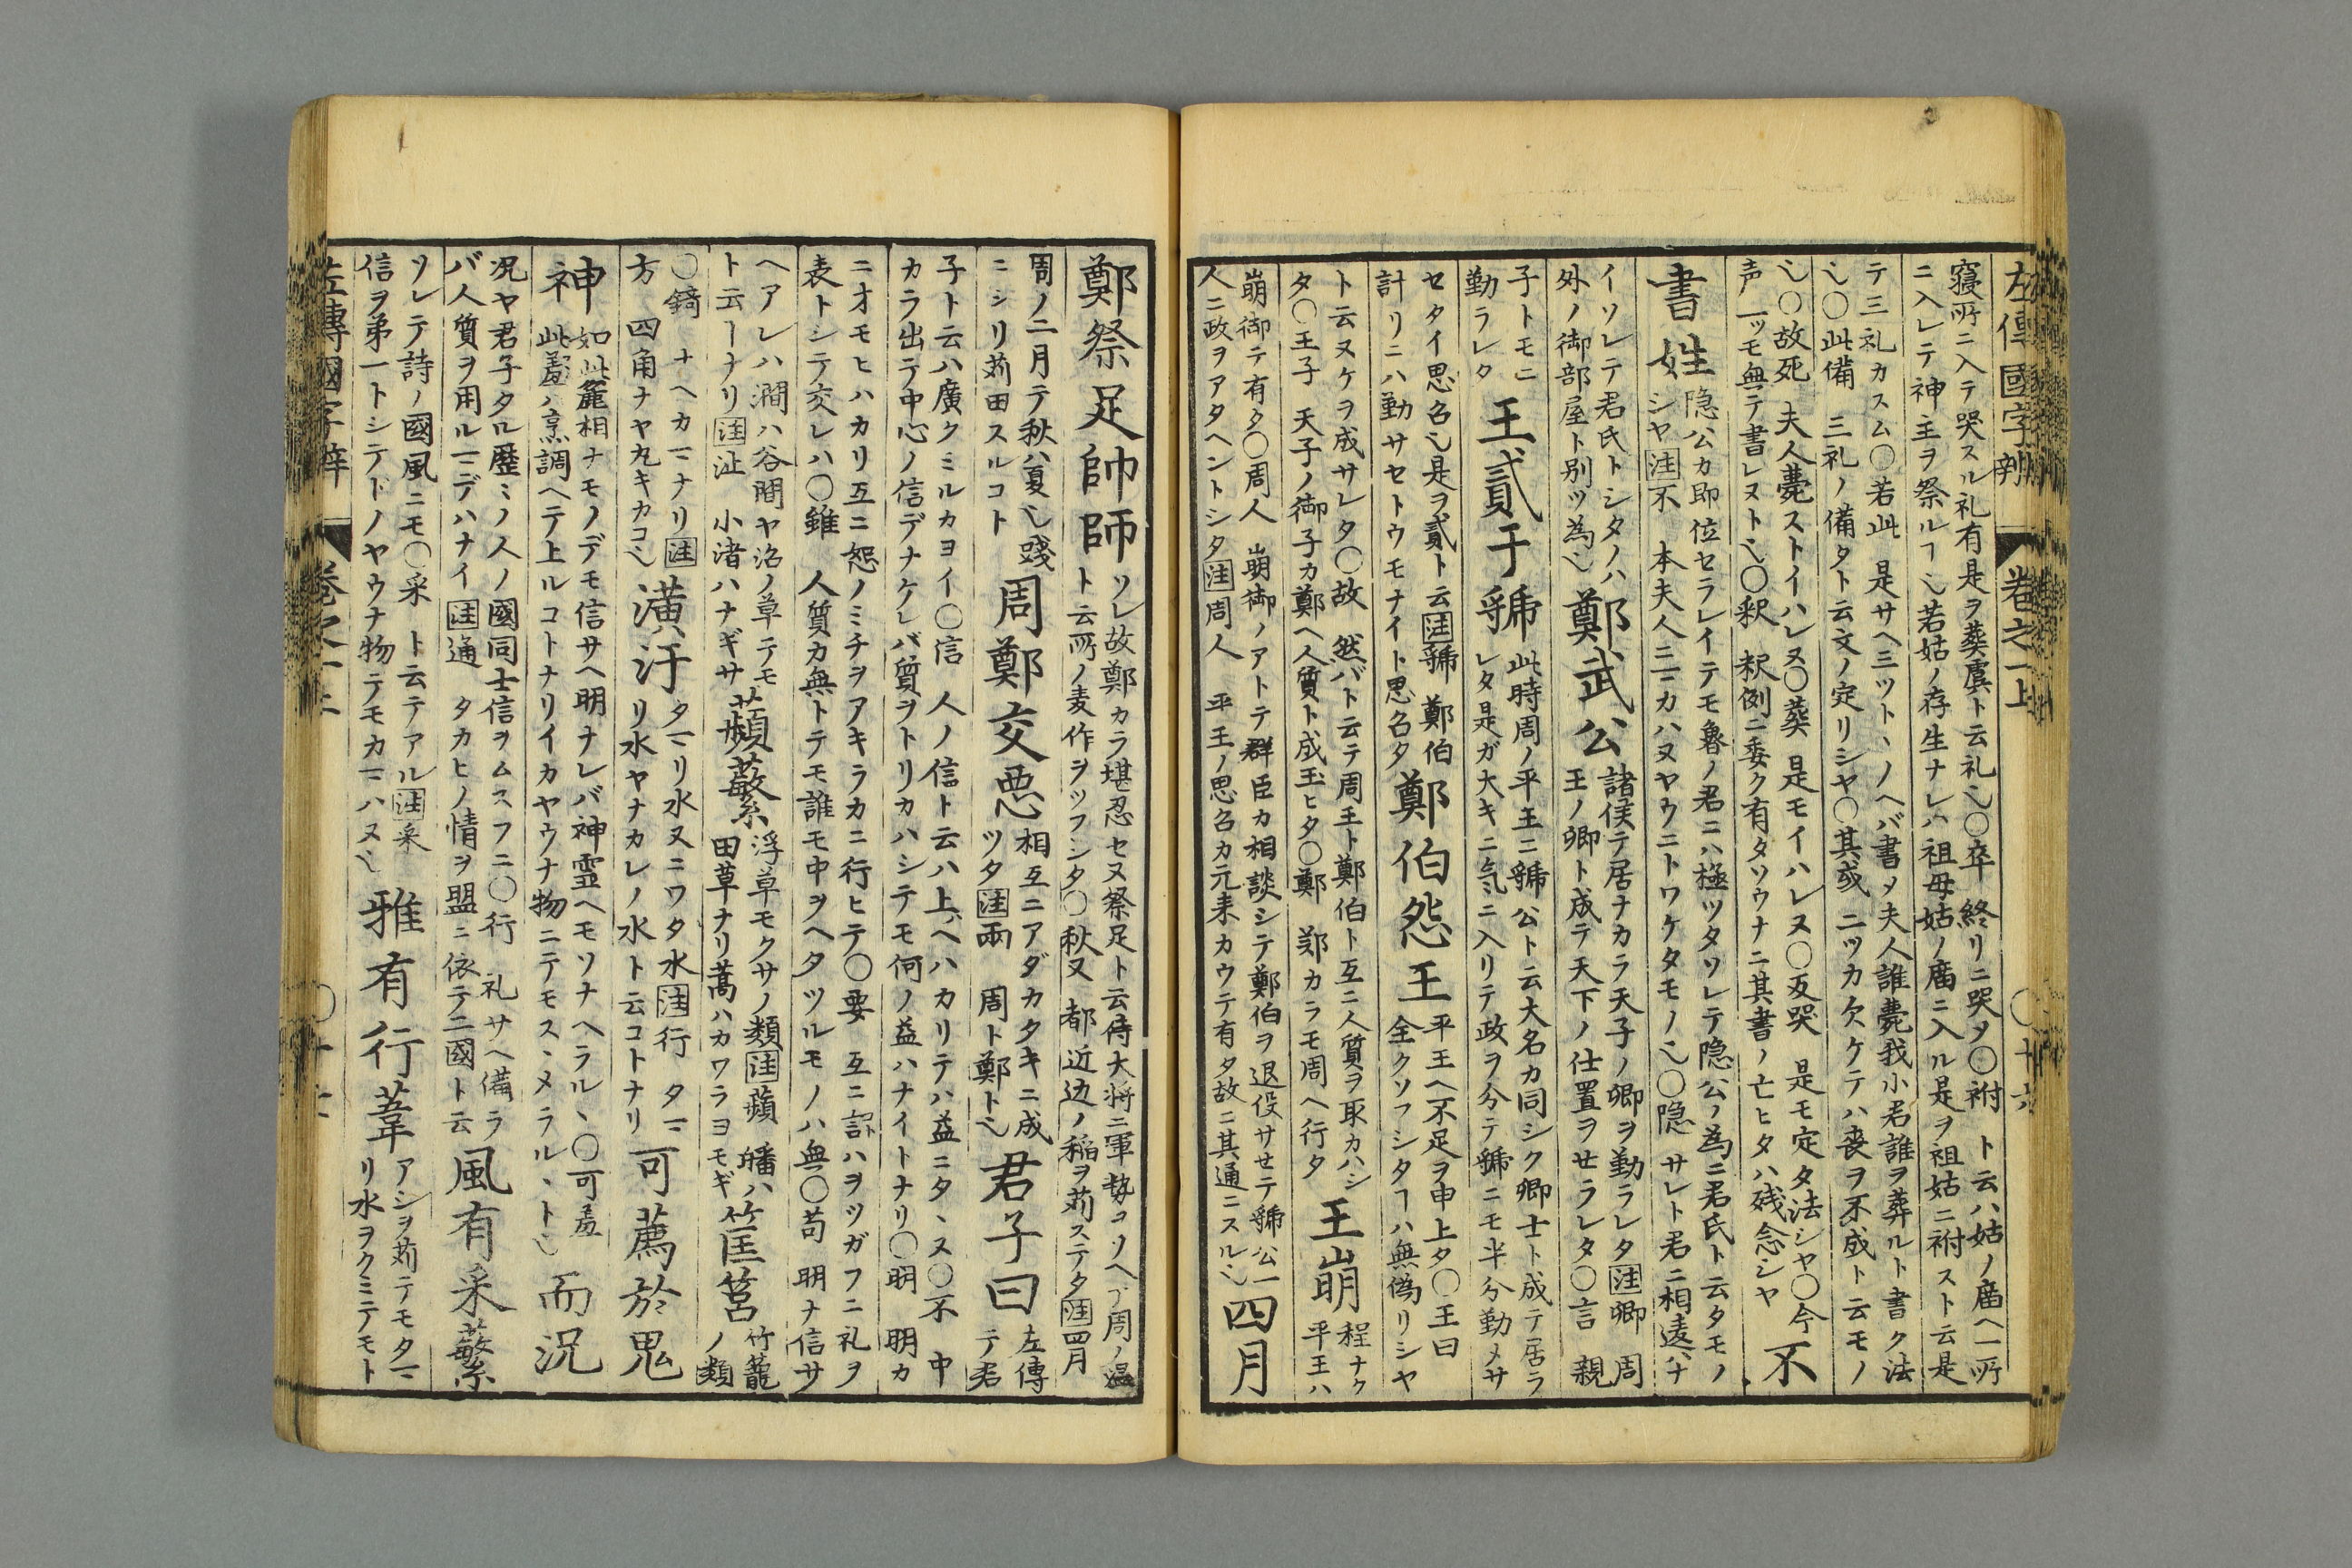 左傳國字辨 卷之一上 〇十六
寝所ニ入テ哭スル礼有是ヲ葬虞ト云礼也〇卒 終リニ哭ヲ〇祔 ト云ハ姑ノ廟ヘ一所
ニ入レテ神主ヲ祭ルヿ也若姑ノ存生ナレハ祖母姑ノ廟ニ入ル是ヲ祖姑ニ祔ストモ云是
テ三礼カスム〇若此 是サヘ三ツトヽノヘバ書メ夫人誰薨我小君誰ヲ葬ルト書ク法
也〇此備 三礼ノ備タト云文ノ定リシヤ〇其或 二ツカ欠ケテハ喪ヲ不成ト云モノ
也〇故死 夫人薨ストイハレヌ〇葬 是モイハレヌ〇反哭 是モ定タ法シヤ〇今
声一ツモ無テ書レヌト也〇釈 釈例ニ委ク有タソウナニ其書ノ亡ヒタハ残念シヤ
不
書姓
隠公カ即位セラレイテモ魯ノ君ニハ極ツタソレテ隠公ノ為ニ君氏ト云タモノ
シヤ注不 本夫人ニ一カハヌヤウニトワケタモノ也〇隠 サレト君ニ相違ハナ
イソレテ君氏トシタノハ
外ノ御部屋ト別ツ為也
鄭武公
諸侯テ居ナカラ天子ノ卿ヲ勤ラレタ注卿 周
王ノ卿ト成テ天下ノ仕置ヲセラレタ〇言 親
子トモニ
勤ラレタ
王貳于虢
此時周ノ平王ニ虢公ト云大名カ同シク卿士ト成テ居ラ
レタ是ガ大キニ気ニ入リテ政ヲ分テ虢ニモ半分勤メサ
セタイ思召也是ヲ貳ト云注虢 鄭伯
計リニハ勤サセトウモナイト思召タ
鄭伯怨王
平王ヘ不足ヲ申上タ〇王曰
全クソフシタヿハ無偽リシヤ
ト云ヌケヲ成サレタ〇故 然バト云テ周王ト鄭伯ト互ニ人質ヲ取カハシ
タ〇王子 天子ノ御子カ鄭ヘ人質ト成玉ヒタ〇鄭 鄭カラモ周ヘ行タ
王崩
程ナク
平王ハ
崩御テ有タ〇周人 崩御ノアトテ群臣カ相談シテ鄭伯ヲ退役サセテ虢公一
人ニ政ヲアタヘントシタ注周人 平王ノ思召カ元来カウテ有タ故ニ其通ニスル也
四月
鄭祭足帥師
ソレ故鄭カラ堪忍セヌ祭足ト云侍大将ニ軍勢コソヘテ周ノ温
ト云所ノ麦作ヲツフシタ〇秋又 都近辺ノ稲ヲ苅ステタ注四月
周ノ二月テ秋ハ夏也踐
ニシリ苅田スルコト
周鄭交悪
相互ニアダカタキニ成
ツタ注両 周ト鄭ト也
君子曰
左傳
テ君
子ト云ハ廣クミルカヨイ〇信 人ノ信ト云ハ上ヘハカリテハ益ニタヽヌ〇不 中
カラ出テ中心ノ信デナケレバ質ヲトリカハシテモ何ノ益ハナイトナリ〇明 明カ
ニオモヒハカリ互ニ恕ノミチヲアキラカニ行ヒテ〇要 互ニ
ハヲツガフニ礼ヲ
表トシテ交レハ〇雖 人質カ無トテモ誰モ中ヲヘタツルモノハ無〇苟 明ナ信サ
ヘアレハ澗ハ谷間ヤ沼ノ草テモ
ト云ーナリ注沚 小渚ハナギサ
蘋蘩
浮草モクサノ類注蘋 皤ハ
田草ナリ蒿ハカワラヨモギ
筐筥
竹籠
ノ類
〇錡 ナヘカマナリ注
方 四角ナヤ丸キカコ也
潢汙
タマリ水又ニワタ水注行 タマ
リ水ヤナカレノ水ト云コトナリ
可薦於鬼
神
如此麁相ナモノデモ信サヘ明ナレバ神霊ヘモソナヘラルヽ〇可羞
此羞ハ烹調ヘテ上ルコトナリイカヤウナ物ニテモスヽメラルヽト也
而況
况ヤ君子タル歴ミノ人ノ國同士信ヲムスフニ〇行 礼サヘ備ラ
バ人質ヲ用ルーデハナイ注通 タカヒノ情ヲ盟ニ依テ二國ト云
風有采蘩
ソレテ詩ノ國風ニモ〇采 ト云テアル注采
信ヲ弟一トシテドノヤウナ物テモカマハヌ也
雅有行葦
アシヲ苅テモタマ
リ水ヲクミテモト
左傳國字辨 卷之一上 〇十七